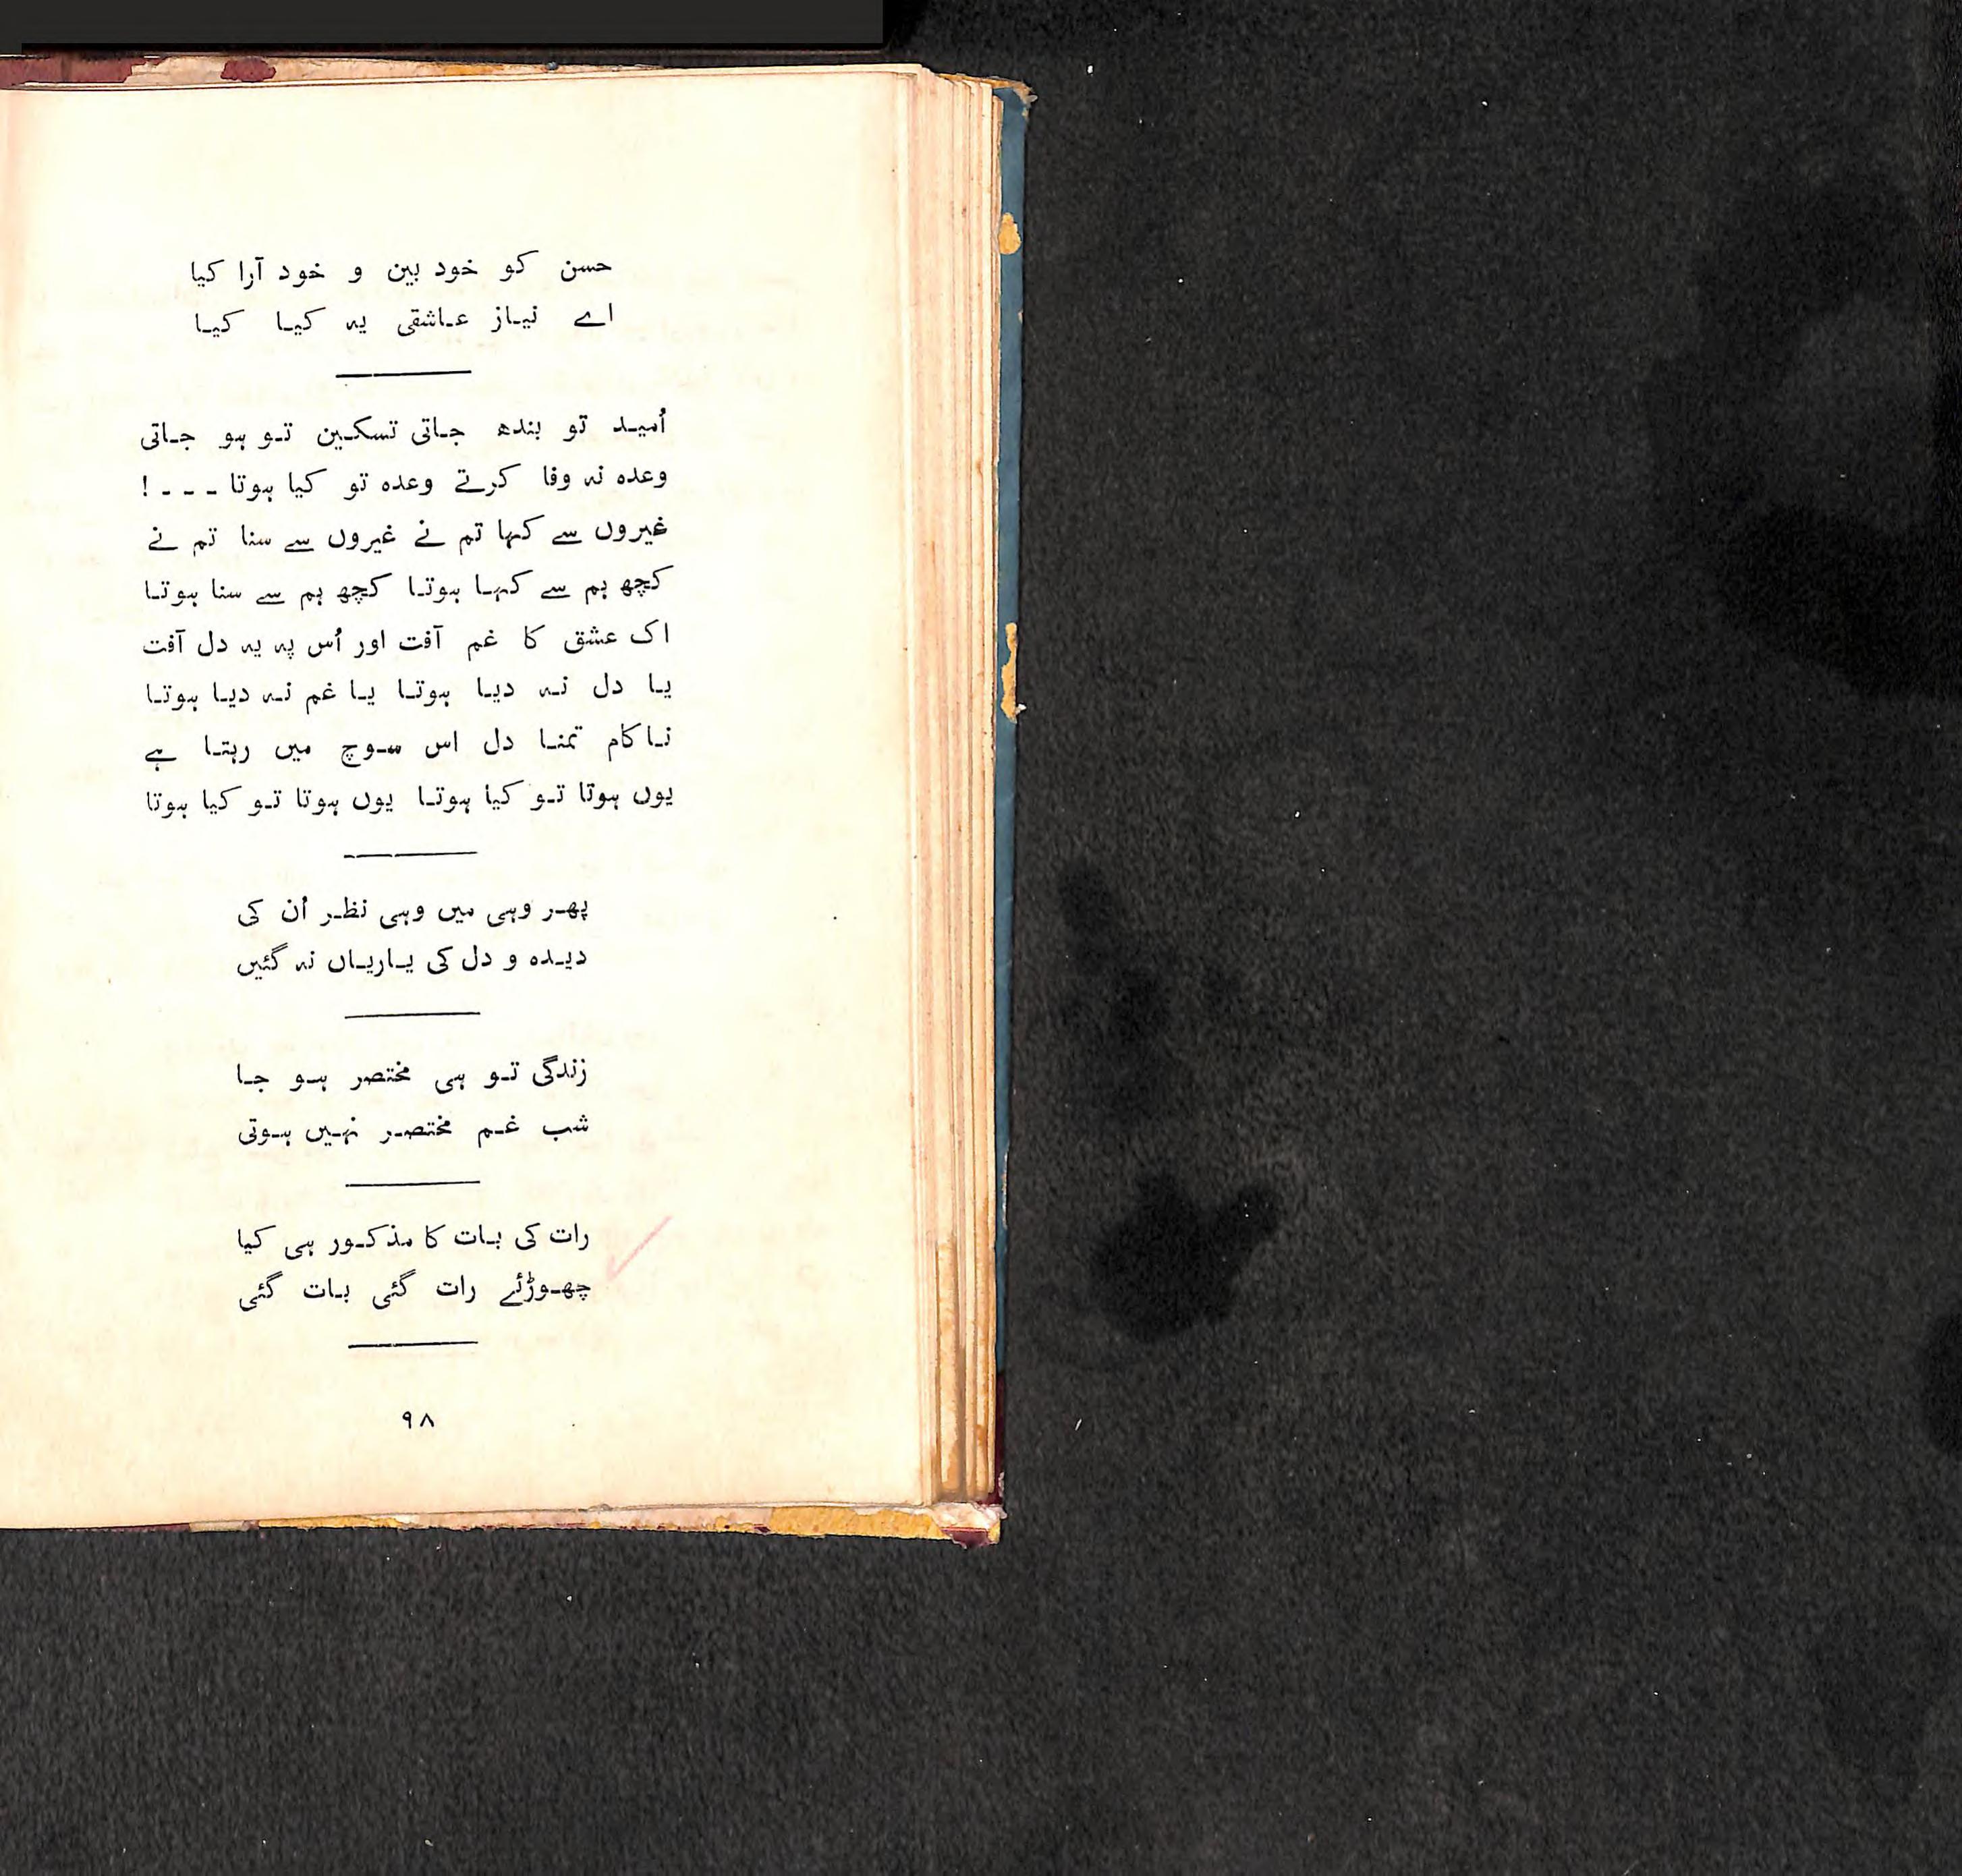 حسن کو خود بین و خود آرا کیا
اے نیاز عاشقی یہ کیا کیا
اُمید تو بندھ جاتی تسکین تو ہو جاتی
وعدہ نہ وفا کرتے وعدہ تو کیا ہوتا - - - !
غیروں سے کہا تم نے غیروں سے سنا تم نے
کچھ ہم سے کہا ہوتا کچھ ہم سے سنا ہوتا
اک عشق کا غم آفت اور اُس پہ یہ دل آفت
یا دل نہ دیا ہوتا یا غم نہ دیا ہوتا
ناکام تمنا دل اس سوچ میں رہتا ہے
یوں ہوتا تو کیا ہوتا یوں ہوتا تو کیا ہوتا
پھر وہی میں وہی نظر اُن کی
دیدہ و دل کی یاریاں نہ گئیں
زندگی تو ہی مختصر ہو جا
شب غم مختصر نہیں ہوتی
رات کی بات کا مذکور ہی کیا
چھوڑئے رات گئی بات گئی
۹۸